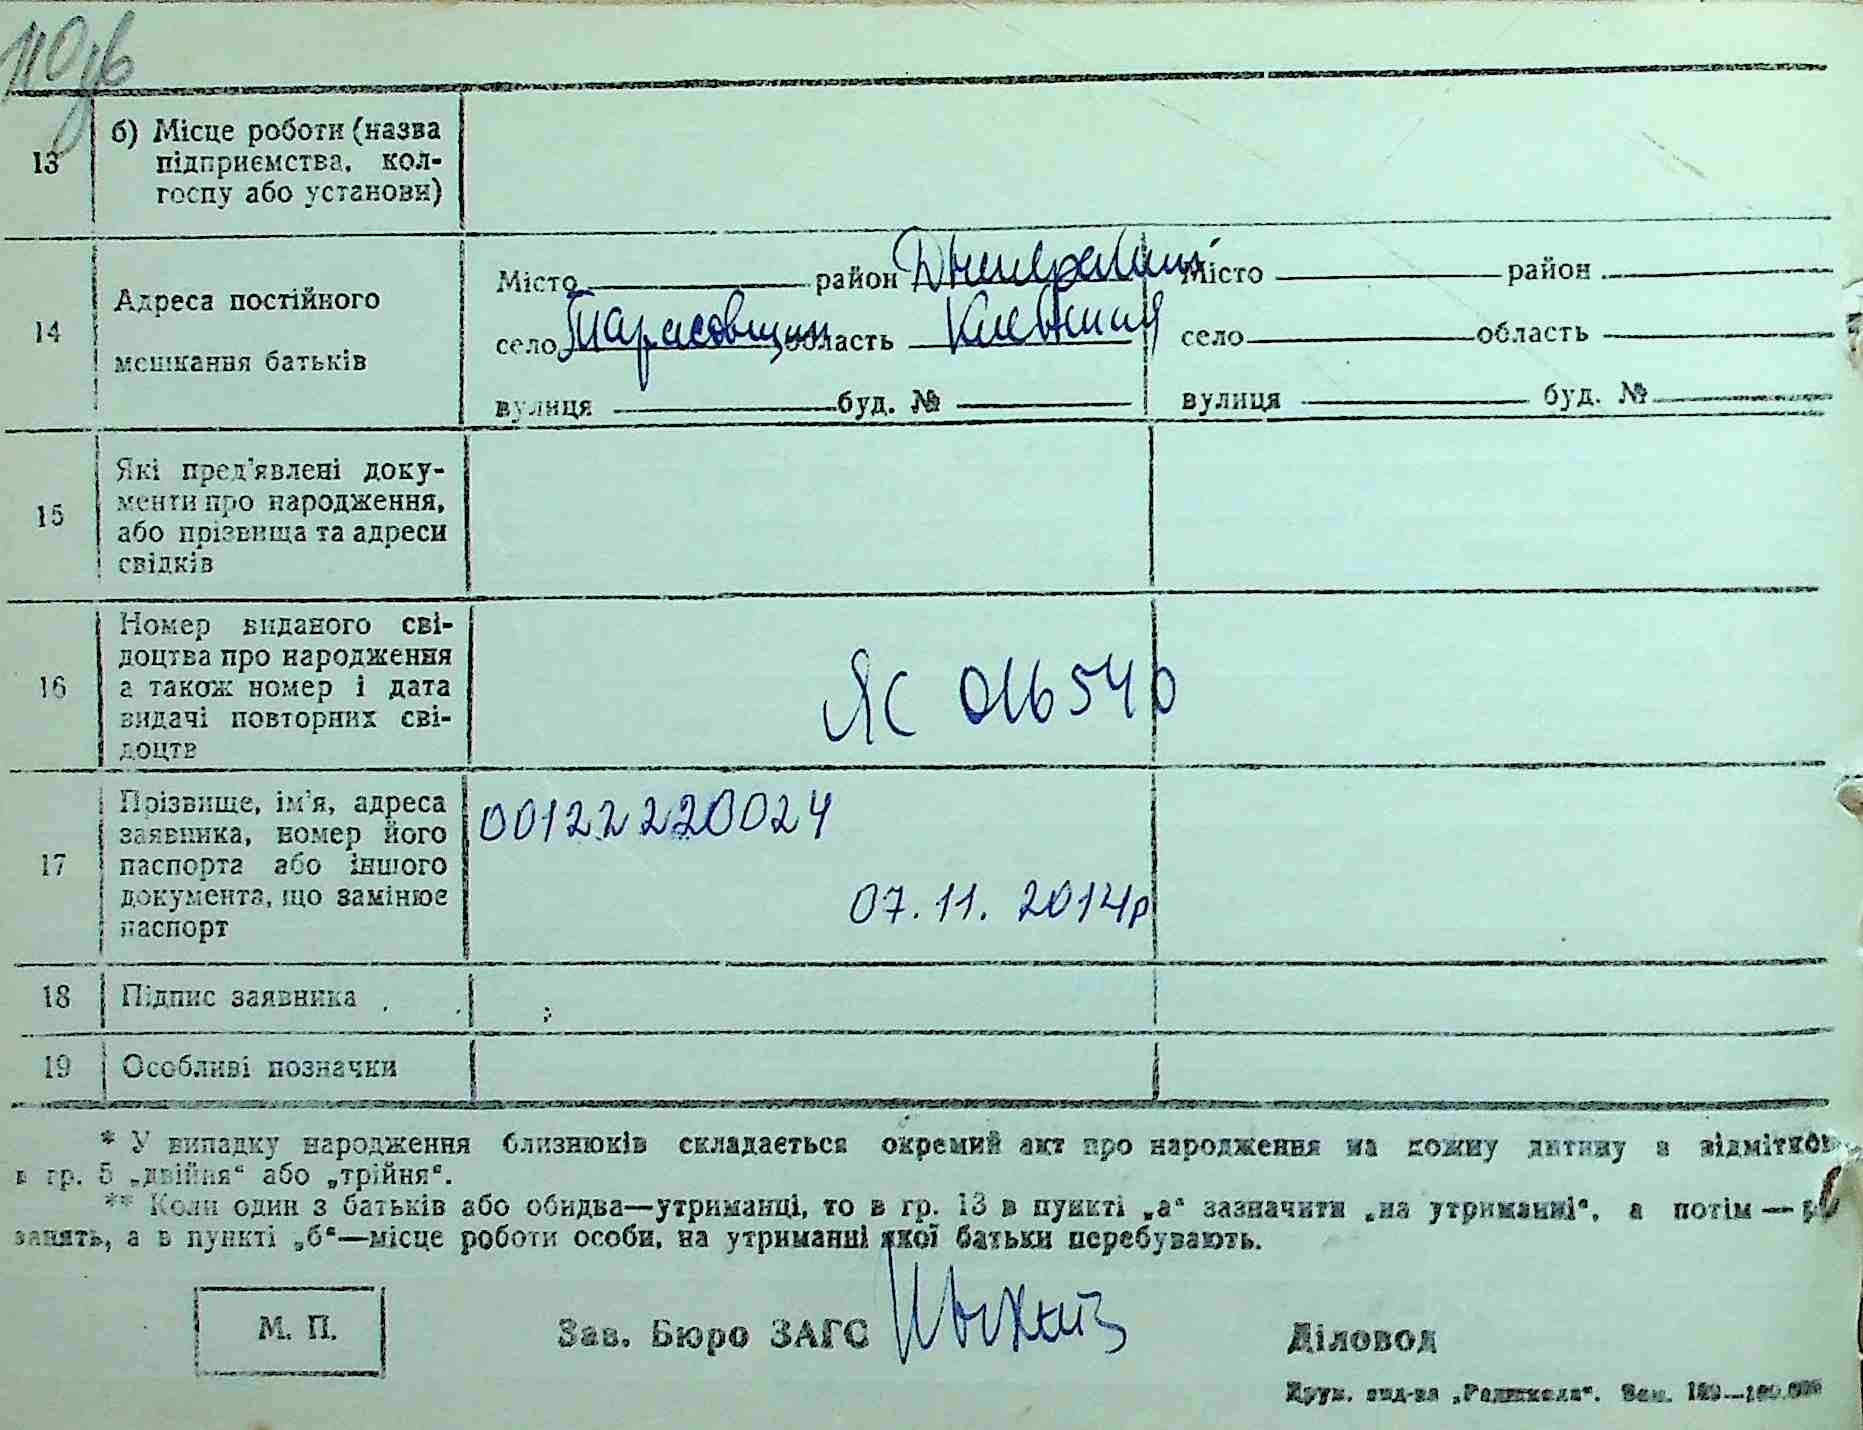 110 зв
13 б) Місце роботи (назва
підприємства, кол-
госпу або установи)
14 Адреса постійного
мешкання батьків
Місто район Дымерский
село Тарасовщин область Киевския
вулиця буд. №
Місто район
село область
вулиця буд. №
15 Які пред'явлені доку-
менти про народження,
або прізвища та адреси
свідків
16 Номер виданого сві-
доцтва про народження
а також номер і дата
видачі повторних сві-
доцтв
ЯС 016540
17 Прізвище, ім'я, адреса
заявника, номер його
паспорта або іншого
документа, що замінює
паспорт
00122220024
07.11.2014р
18 Підпис заявника
19 Особливі позначки
* У випадку народження близнюків складається окремий акт про народження на кожну дитину з відміткою
в гр. 5 „двійня“ або „трійня“.
** Коли один з батьків або обидва—утриманці, то в гр. 13 в пункті „а“ зазначити „на утриманні“, а потім —
занять, а в пункті „б“—місце роботи особи, на утриманні якої батьки перебувають.
М. П.
Зав. Бюро ЗАГС
Діловод
Друк. вид-ва „Радшкола“. Зам.